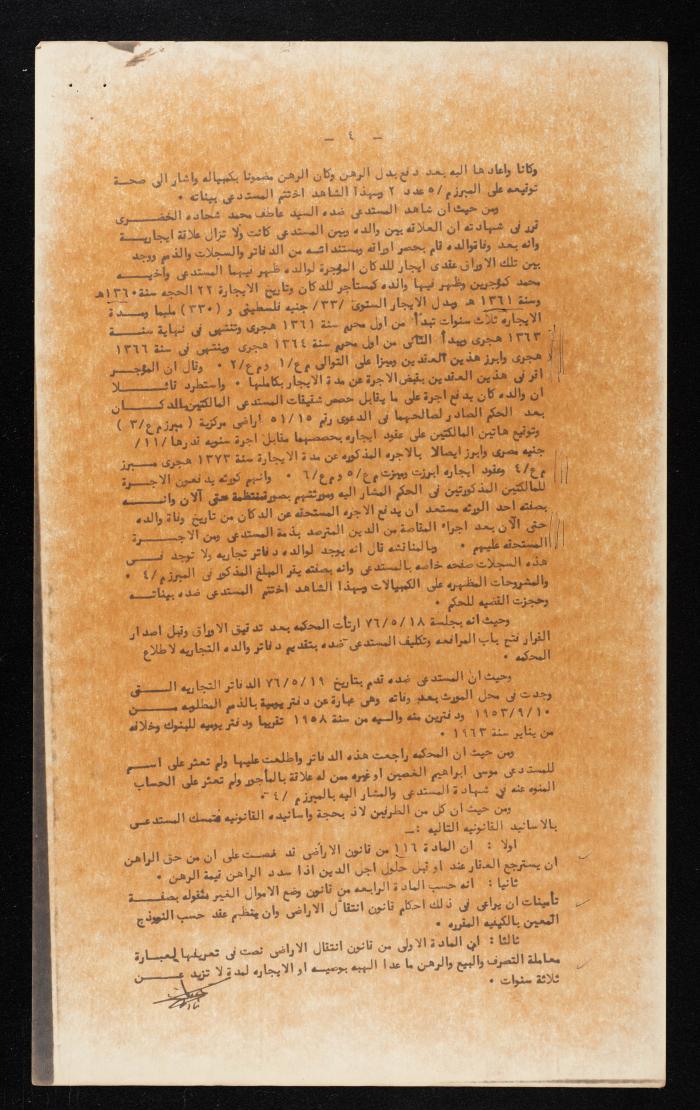 - ٤ -
وكانا واعادها اليه بعد دفع بدل الرهن وكان الرهن مضمونا بكمبياله واشار الى صحة
توقيعه على المبرز م/٥ عدد ٢ وبهذا الشاهد اختتم المستدعي بيناته .
ومن حيث ان شاهد المستدعى ضده السيد عاطف محمد شحاده الخضرى
قرر فى شهادته ان العلاقه بين والده وبين المستدعى كانت ولا تزال علاقة ايجاريـة
وانه بعد وفاة والده قام بحصر اوراقه ومستنداته من الدفاتر والسجلات والذمم ووجد
بين تلك الاوراق عقدى ايجار للدكان المؤجرة لوالده ظهر فيهما المستدعى واخيـه
محمد كمؤجرين وظهر فيها والده كمستأجر للدكان وتاريخ الايجارة ٢٢ الحجه سنة ١٣٦٠هـ
وسنة ١٣٦١ هـ وببدل الايجار السنوى /٣٣/ جنيه فلسطينى و (٣٣٠) مليما ومـدة
الايجاره ثلاث سنوات تبدأ من اول محرم سنة ١٣٦١ هجرى وتنتهى فى نهاية سنـة
١٣٦٣ هجرى ويبدأ الثانى من اول محرم سنة ١٣٦٤ هجرى وينتهى فى سنة ١٣٦٦
هجرى وابرز هذين العقدين وميزا على التوالى م ع/١ و م ع/٢ . وقال ان المؤجـر
اقر فى هذين العقدين بقبض الاجرة عن مدة الايجار بكاملها . واستطرد قائـلا
ان والده كان يدفع اجرة على ما يقابل حصص شقيقات المستدعى المالكتين بالدكـان
بعد الحكم الصادر لصالحهما فى الدعوى رقم ٥١/١٥ اراضى مركزية ( مبرز م ع/٣ )
وتوقيع هاتين المالكتين على عقود ايجاره بحصصهما مقابل اجرة سنويه قدرها /١١/
جنيه مصرى وابرز ايصالا بالاجره المذكوره عن مدة الايجارة سنة ١٣٧٣ هجرى مـبرز
م ع/٤ وعقود ايجاره ابرزت وميزت م ع/٥ و م ع/٦ . وانهم كورثه يدفعون الاجـرة
للمالكتين المذكورتين فى الحكم المشار اليه ومورثهم بصورة منتظمة حتى آلان وانـه
بصفته احد الورثه مستعد ان يدفع الاجره المستحقه عن الدكان من تاريخ وفاة والده
حتى الآن بعد اجراء المقاصة من الدين المترصد بذمة المستدعى ومن الاجـرة
المستحقه عليهم . وبالمناقشه قال انه يوجد لوالده دفاتر تجاريه ولا توجد فـى
هذه السجلات صفحه خاصه بالمستدعى وانه بصفته يقر المبلغ المذكور فى المبرز م/٤ .
والمشروحات المظهره على الكمبيالات وبهذا الشاهد اختتم المستدعى ضده بيناتـه
وحجزت القضيه للحكم .
وحيث انه بجلسة ٧٦/٥/١٨ ارتأت المحكمه بعد تدقيق الاوراق وقبل اصدار
القرار فتح باب المرافعه وتكليف المستدعى ضده بتقديم دفاتر والده التجاريه لاطلاع
المحكمه .
وحيث ان المستدعى ضده قدم بتاريخ ٧٦/٥/١٩ الدفاتر التجاريه التـى
وجدت فى محل المورث بعد وفاته وهى عبارة عن دفتر يومية بالذمم المطلوبه مـن
١٩٥٣/٩/١٠ ودفترين منه واليه من سنة ١٩٥٨ تقريبا ودفتر يوميه للبنوك وخلافه
من يناير سنة ١٩٦٣ .
ومن حيث ان المحكمه راجعت هذه الدفاتر واطلعت عليها ولم تعثر على اسـم
للمستدعى موسى ابراهيم الغصين او غيره ممن له علاقة بالمأجور ولم تعثر على الحساب
المنوه عنه فى شهادة المستدعى والمشار اليه بالمبرز م /٤ .
ومن حيث ان كل من الطرفين لاذ بحجة واسانيده القانونيه فتمسك المستدعـى
بالاسانيد القانونيه التاليه :ـ
اولا : ان المادة ١١٦ من قانون الاراضى قد نصت على ان من حق الراهن
ان يسترجع العقار عند او قبل حلول اجل الدين اذا سدد الراهن قيمة الرهن .
ثانيا : انه حسب المادة الرابعه من قانون وضع الاموال الغير منقوله بصفـة
تأمينات ان يراعى فى ذلك احكام قانون انتقال الاراضى وان ينظم عقد حسب النموذج
المعين بالكيفيه المقرره .
ثالثا : ان المادة الاولى من قانون انتقال الاراضى نصت فى تعريفها لعبـارة
معاملة التصرف والبيع والرهن ما عدا الهبه بوصيه او الايجاره لمدة لا تزيد عـن
ثلاثة سنوات .